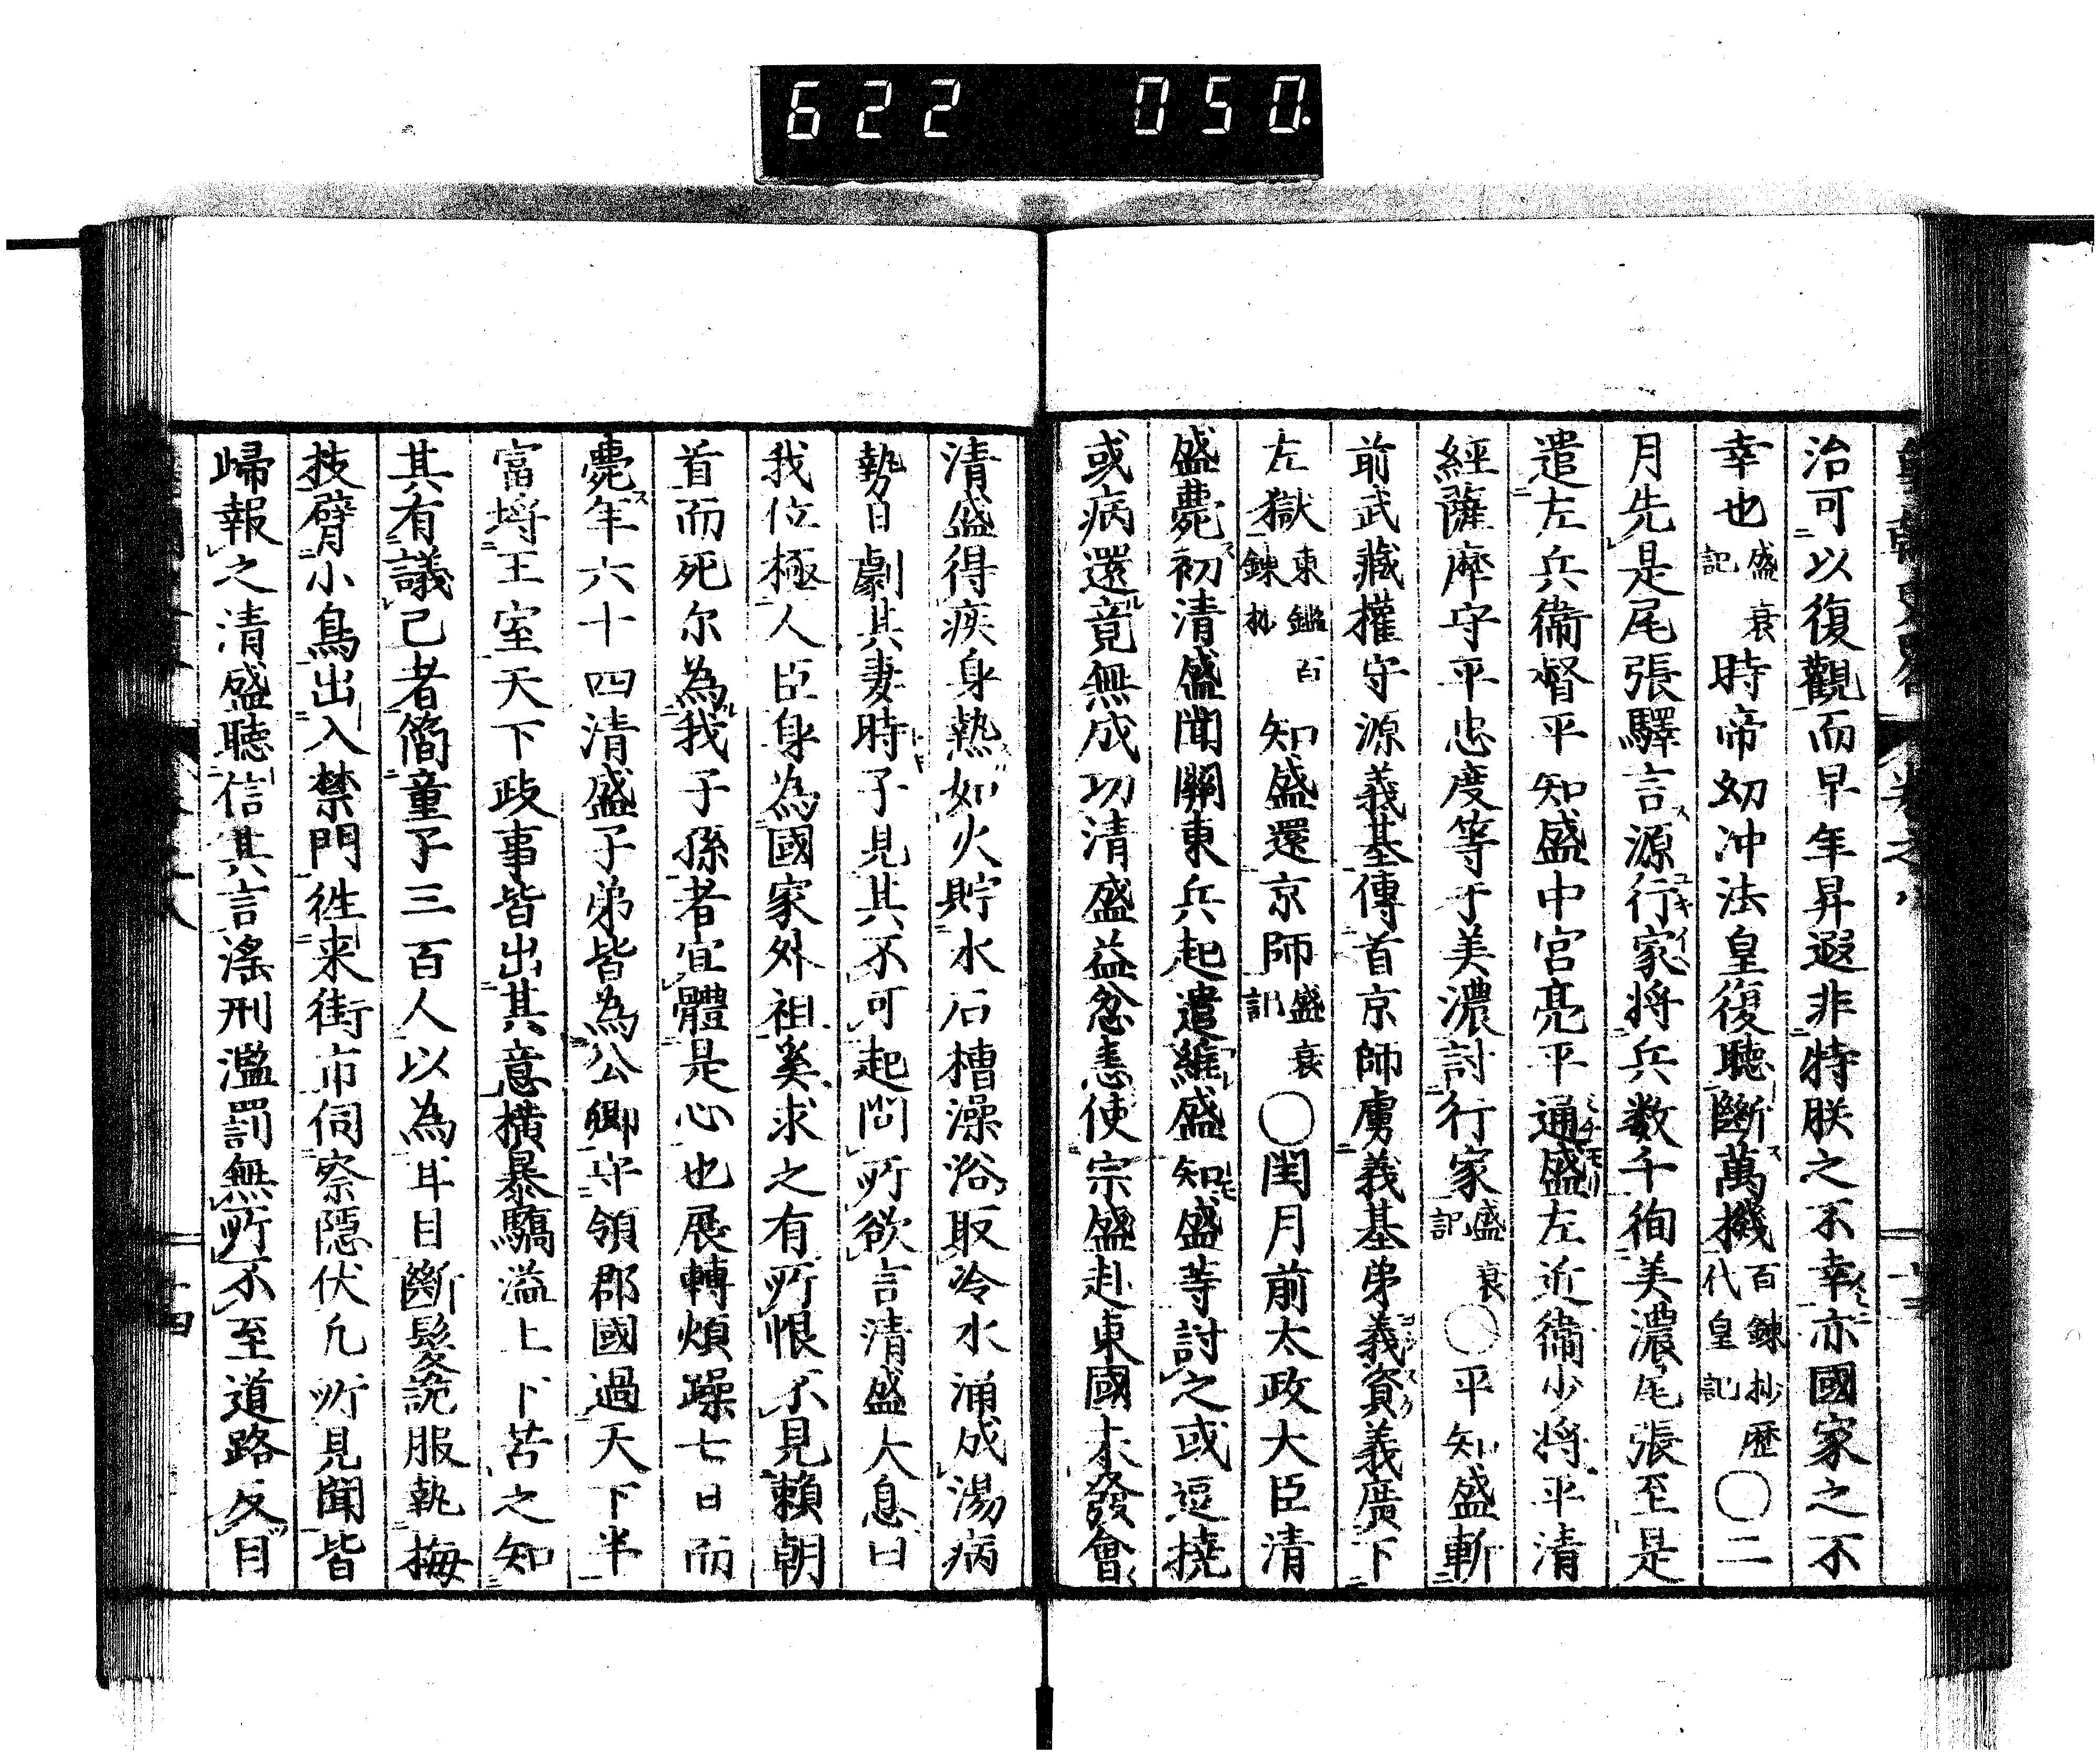 622 050.
治可以復觀而早年昇遐非特朕之不幸亦國家之不
幸也盛衰記時帝幼冲法皇復聽斷萬機百錬抄歷代皇記〇二
月先是尾張驛言源行家将兵数千徇美濃尾張至是
遣左兵衞督平知盛中宮亮平通盛左近衞少将平清
經薩摩守平忠度等于美濃討行家盛衰記〇平知盛斬
前武藏權守源義基傳首京師虜義基弟義資義廣下
左獄東鑑百錬抄知盛還京師盛衰記〇閏月前太政大臣清
盛薨初清盛聞關東兵起遣維盛知盛等討之或逗撓
或病還竟無成功清盛益忿恚使宗盛赴東國未發會
清盛得疾身熱如火貯水石槽澡浴取冷水涌成湯病
勢日劇其妻時子見其不可起問所欲言清盛大息曰
我位極人臣身為國家外祖奚求之有所恨不見賴朝
首而死尔為我子孫者宜體是心也展轉煩躁七日而
薨年六十四清盛子弟皆為公卿守領郡國過天下半
富埒王室天下政事皆出其意橫暴驕溢上下苦之知
其有議己者簡童子三百人以為耳目斷髮詭服執梅
技臂小鳥出入禁門徃来街市伺察隱伏凢所見聞皆
歸報之清盛聽信其言滛刑濫罰無所不至道路反目